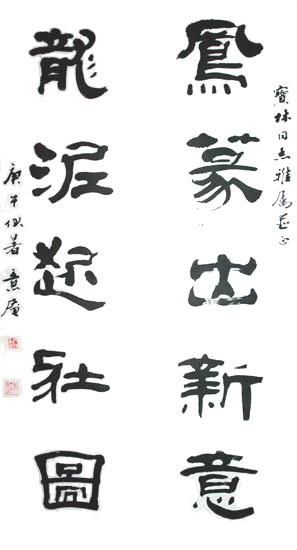 寶林同志雅屬正
鳳篆出新意
龍泥起壯圖
庚午伏暑 意庵